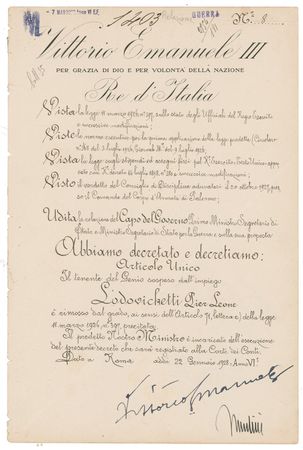 - 7 MARZO 1928 Anno VI E.F.
1403
GUERRA
N° 8
Vittorio Emanuele III
PER GRAZIA DI DIO E PER VOLONTÀ DELLA NAZIONE
Re d'Italia
Vista la legge 11 marzo 1926 n° 397, sullo stato degli Ufficiali del Regio Esercito
e successive modificazioni;
Viste le norme esecutive per la prima applicazione della legge predetta (Circolare
N° 318 del 3 luglio 1926, Giornale M. del 3 luglio 1926);
Vista la legge sugli stipendi ed assegni fissi pel R° Esercito, Testo Unico appro-
vato con R° decreto e successive modificazioni;
Visto il verdetto del Consiglio di Disciplina adunatosi il 20 ottobre 1927, pres-
so il Comando del Corpo d'Armata di Palermo;
Udita la relazione del Capo del Governo Primo Ministro Segretario di
Stato e Ministro Segretario di Stato per la Guerra e sulla sua proposta
Abbiamo decretato e decretiamo:
Articolo Unico
Il tenente del Genio sospeso dall'impiego
Lodovichetti Pier Leone
è rimosso dal grado, ai sensi dell'Articolo 71, lettera c) della legge
11 marzo 1926, n° 397, succitata.
Il predetto Nostro Ministro è incaricato dell'esecuzione
del presente decreto che sarà registrato alla Corte dei Conti.
Dato a Roma addì 22 Gennaio 1928 - Anno VI°
Vittorio Emanuele
Mussolini